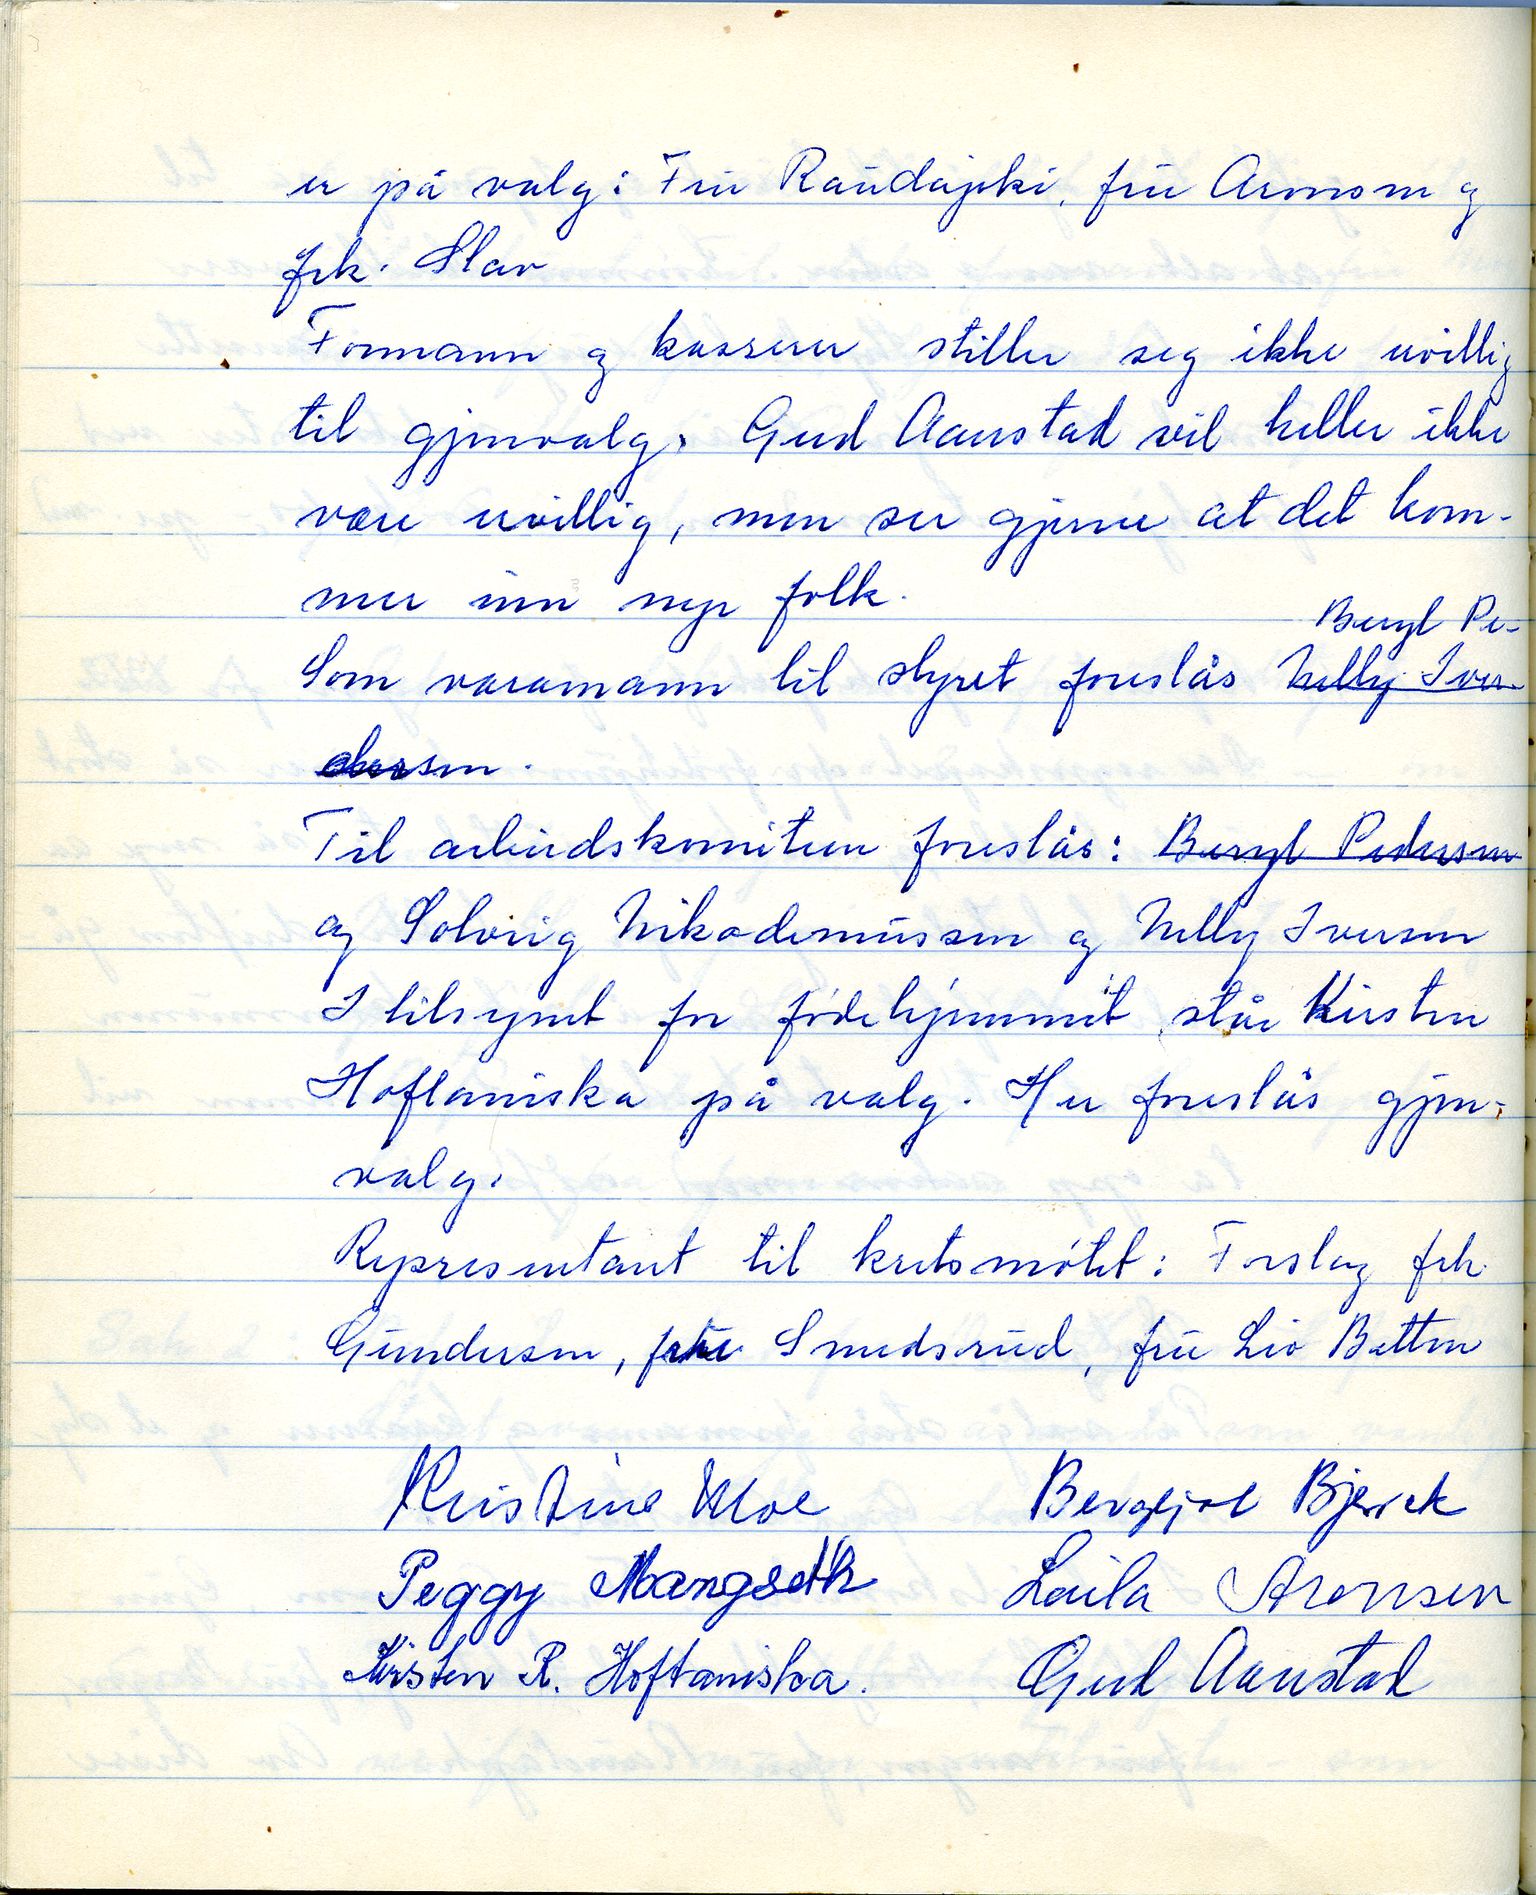 er på valg: Fru Raudajoki, fru Aronsen og
frk. Slav
Formann og kasserer stiller seg ikke uvillig
til gjenvalg. Gerd Aanstad vil heller ikke
være uvillig, men ser gjerne at det kom-
mer inn nye folk.
Beryl Pe-
Som varamann til styret foreslås Nelly Iver
dersen.
Til arbeidskomiteen foreslås: Beryl Pedersen
og Solveig Nikodemussen og Nelly Iversen
I tilsynet for fødehjemmet står Kirsten
Hoftaniska på valg. Her foreslås gjen-
valg.
Representant til kretsmøtet: Forslag frk.
Gundersen, fru Smedsrud, fru Liv Betten
Kristine Moe Bergljot Bjervek
Peggy Mangseth Laila Aronsen
Kirsten R. Hoftaniska. Gerd Aanstad